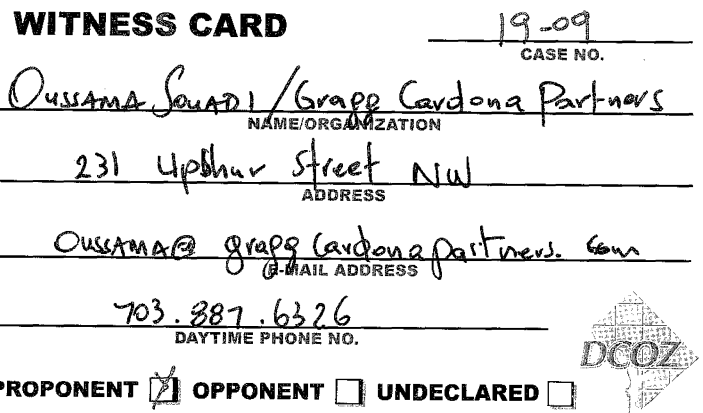 WITNESS CARD
19-09
CASE NO.
OUSSAMA SOUADI/Grapp Cardona Partners
NAME/ORGANIZATION
231 Upshur Street NW
ADDRESS
OUSSAMA@ grappCardonapartners.com
E-MAIL ADDRESS
703.887.6326
DAYTIME PHONE NO.
DCOZ
PROPONENT OPPONENT UNDECLARED